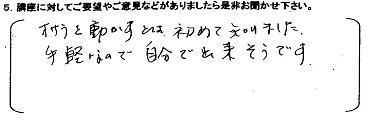 5. 講座に対してご要望やご意見などがありましたら是非お聞かせ下さい。
動かすとは初めて知りました。
手軽なので自分で出来そうです。